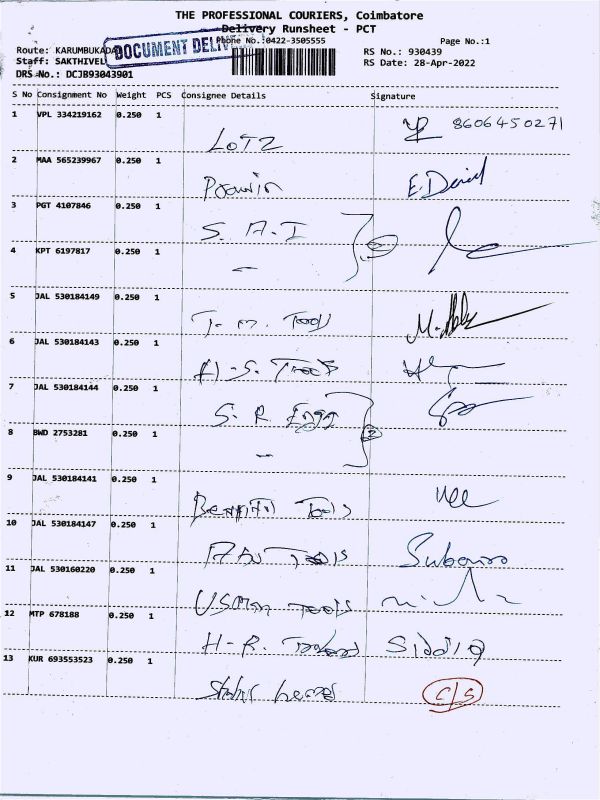 THE PROFESSIONAL COURIERS, Coimbatore
Delivery Runsheet - PCT
Phone No.:0422-3505555
Page No.:1
Route: KARUMBUKADA
DOCUMENT DELIV
RS No.: 930439
Staff: SAKTHIVEL
RS Date: 28-Apr-2022
DRS No.: DCJB93043901
S No Consignment No Weight PCS Consignee Details Signature
1 VPL 334219162 0.250 1
8606450271
LOTZ
2 MAA 565239967 0.250 1
E. Daniel
3 PGT 4107846 0.250 1
S. A. I
4 KPT 6197817 0.250 1
-
5 JAL 530184149 0.250 1
T. M. Tools
6 JAL 530184143 0.250 1
H-S. Tools
7 JAL 530184144 0.250 1
S. R. Engg
2
8 BWD 2753281 0.250 1
-
9 JAL 530184141 0.250 1
Tools
10 JAL 530184147 0.250 1
Tools
11 JAL 530160220 0.250 1
Usman Tools
12 MTP 678188 0.250 1
H-R. Siddiq
13 KUR 693553523 0.250 1
C/S